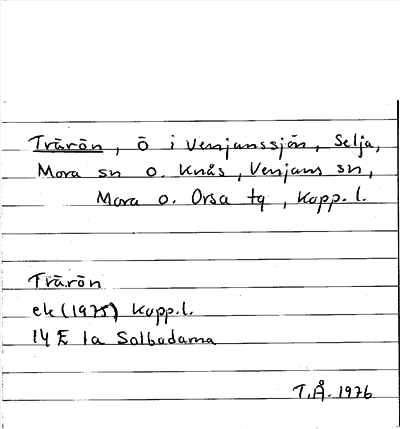 Trärön, ö i Venjanssjön, Selja,
Mora sn o. Knås, Venjans sn,
Mora o. Orsa tg, Kopp. l.
Trärön
ek (1975) Kopp.l.
14 E 1a Salbodarna
T.Å. 1976